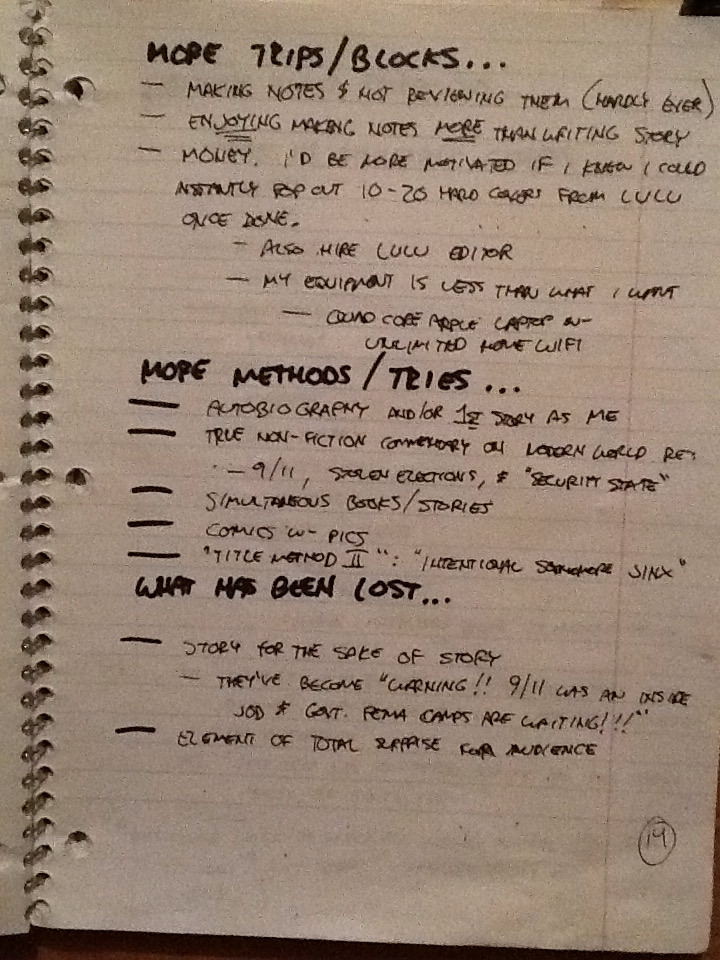 MORE TRIPS/BLOCKS...
— MAKING NOTES & NOT REVIEWING THEM (HARDLY EVER)
— ENJOYING MAKING NOTES MORE THAN WRITING STORY
— MONEY. I'D BE MORE MOTIVATED IF I KNEW I COULD
INSTANTLY POP OUT 10-20 HARD COVERS FROM LULU
ONCE DONE.
— ALSO HIRE LULU EDITOR
— MY EQUIPMENT IS LESS THAN WHAT I WANT
— QUAD CORE APPLE LAPTOP W-
UNLIMITED HOME WIFI
MORE METHODS/TRIES...
— AUTOBIOGRAPHY AND/OR 1st STORY AS ME
— TRUE NON-FICTION COMMENTARY ON MODERN WORLD RE:
— 9/11, STOLEN ELECTIONS, & "SECURITY STATE"
— SIMULTANEOUS BOOKS/STORIES
— COMICS W- PICS
— "TITLE METHOD II": "INTENTIONAL SOPHOMORE JINX"
WHAT HAS BEEN LOST...
— STORY FOR THE SAKE OF STORY
— THEY'VE BECOME "WARNING!! 9/11 WAS AN INSIDE
JOB & GOVT. FEMA CAMPS ARE WAITING!!!"
— ELEMENT OF TOTAL SURPRISE FOR AUDIENCE
19